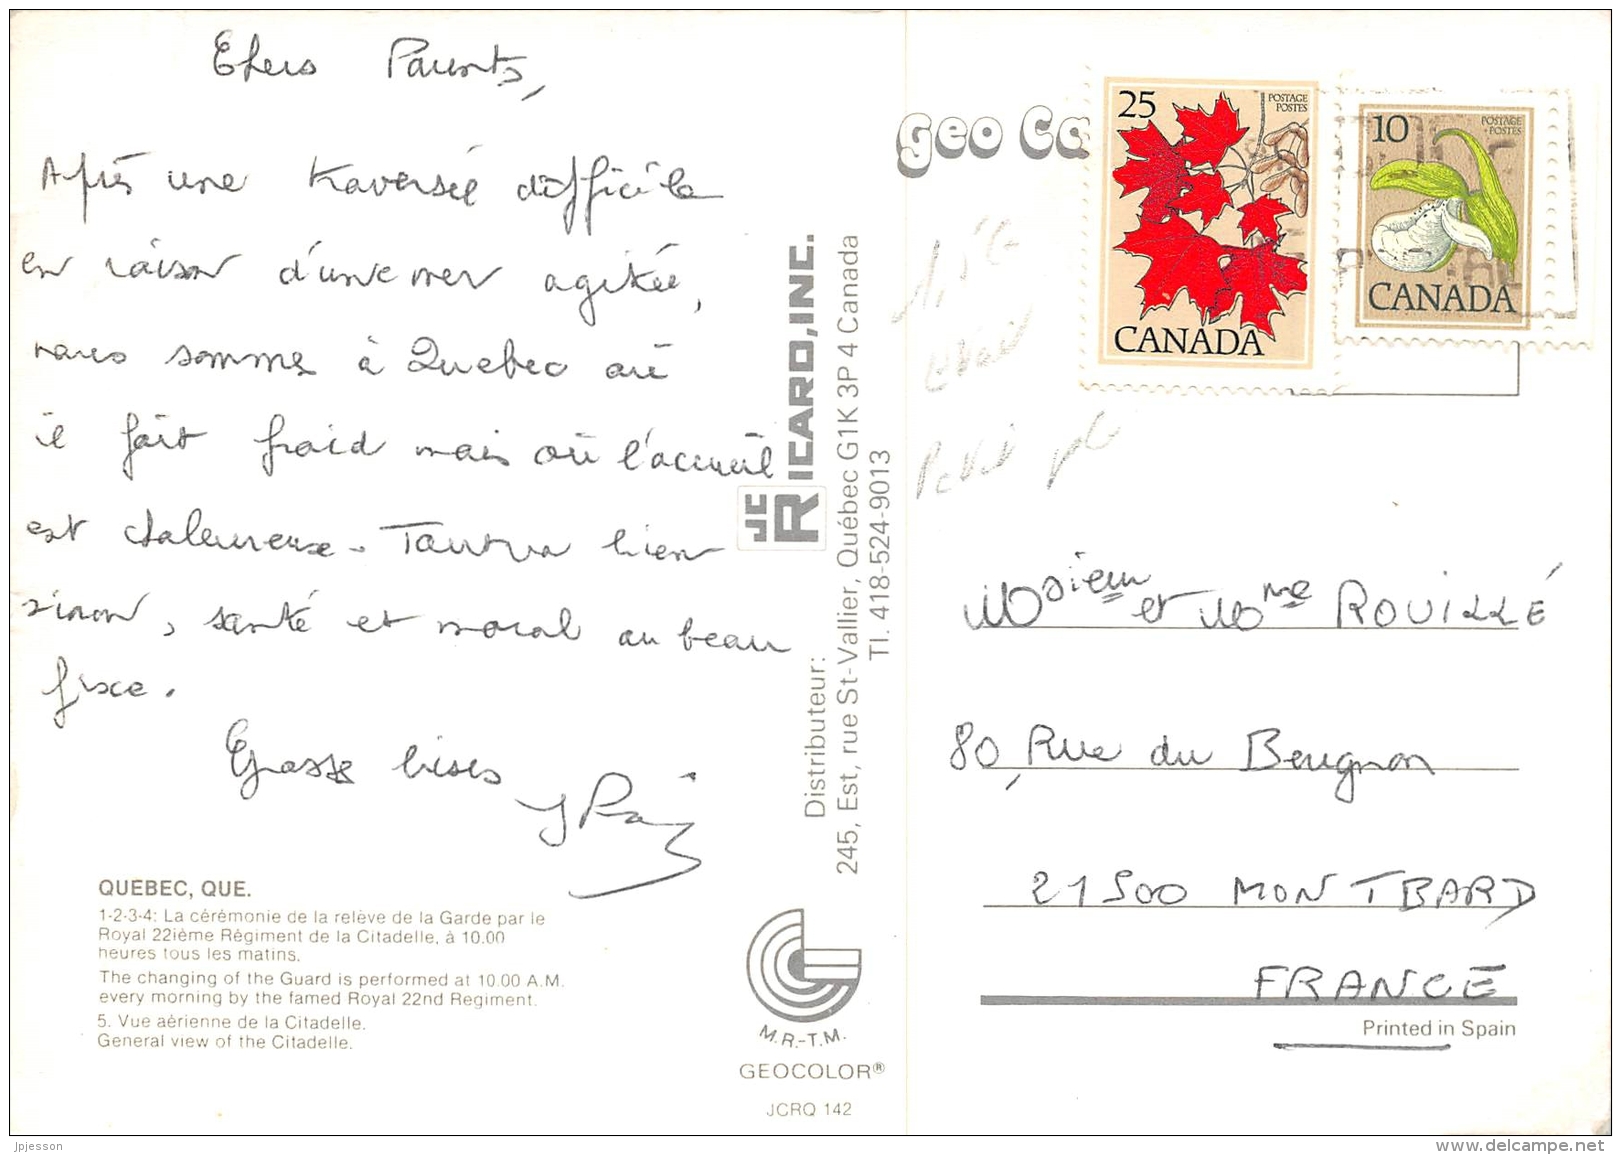 Chers Parents,
Après une traversée difficile
en raison d'une mer agitée,
nous sommes à Quebec où
il fait froid mais où l'accueil
est chaleureuse. Tout va bien
sinon, santé et moral au beau
fixe.
Grosses bises
QUEBEC, QUE.
1-2-3-4: La cérémonie de la relève de la Garde par le
Royal 22ième Règiment de la Citadelle, à 10.00
heures tous les matins.
The changing of the Guard is performed at 10.00 A.M.
every morning by the famed Royal 22nd Regiment.
5. Vue aèrienne de la Citadelle.
General view of the Citadelle.
JC RICARD, INC.
Distributeur:
245, Est, rue St-Vallier, Québec G1K 3P 4 Canada
Tl. 418-5245-9013
M.R.-T.M.
GEOCOLOR®
JCRQ 142
Geo Ca
25
POSTAGE
POSTES
CANADA
10
POSTAGE
POSTES
CANADA
Msieur et Mme ROUILLÉ
80, Rue du Beugnon
21500 MONTBARD
FRANCE
Printed in Spain
jpjesson
www.delcampe.net